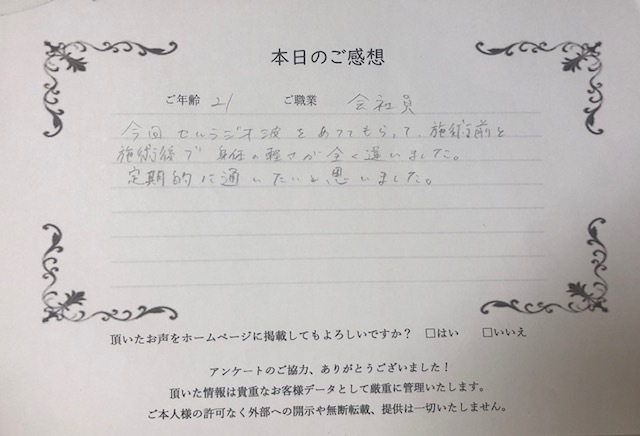 本日のご感想
ご年齢 21 ご職業 会社員
今回セルラジオ波をあててもらって、施術前と
施術後で身体の軽さが全く違いました。
定期的に通いたいと思いました。
頂いたお声をホームページに掲載してもよろしいですか? □はい □いいえ
アンケートのご協力、ありがとうございました!
頂いた情報は貴重なお客様データとして厳重に管理いたします。
ご本人様の許可なく外部への開示や無断転載、提供は一切いたしません。